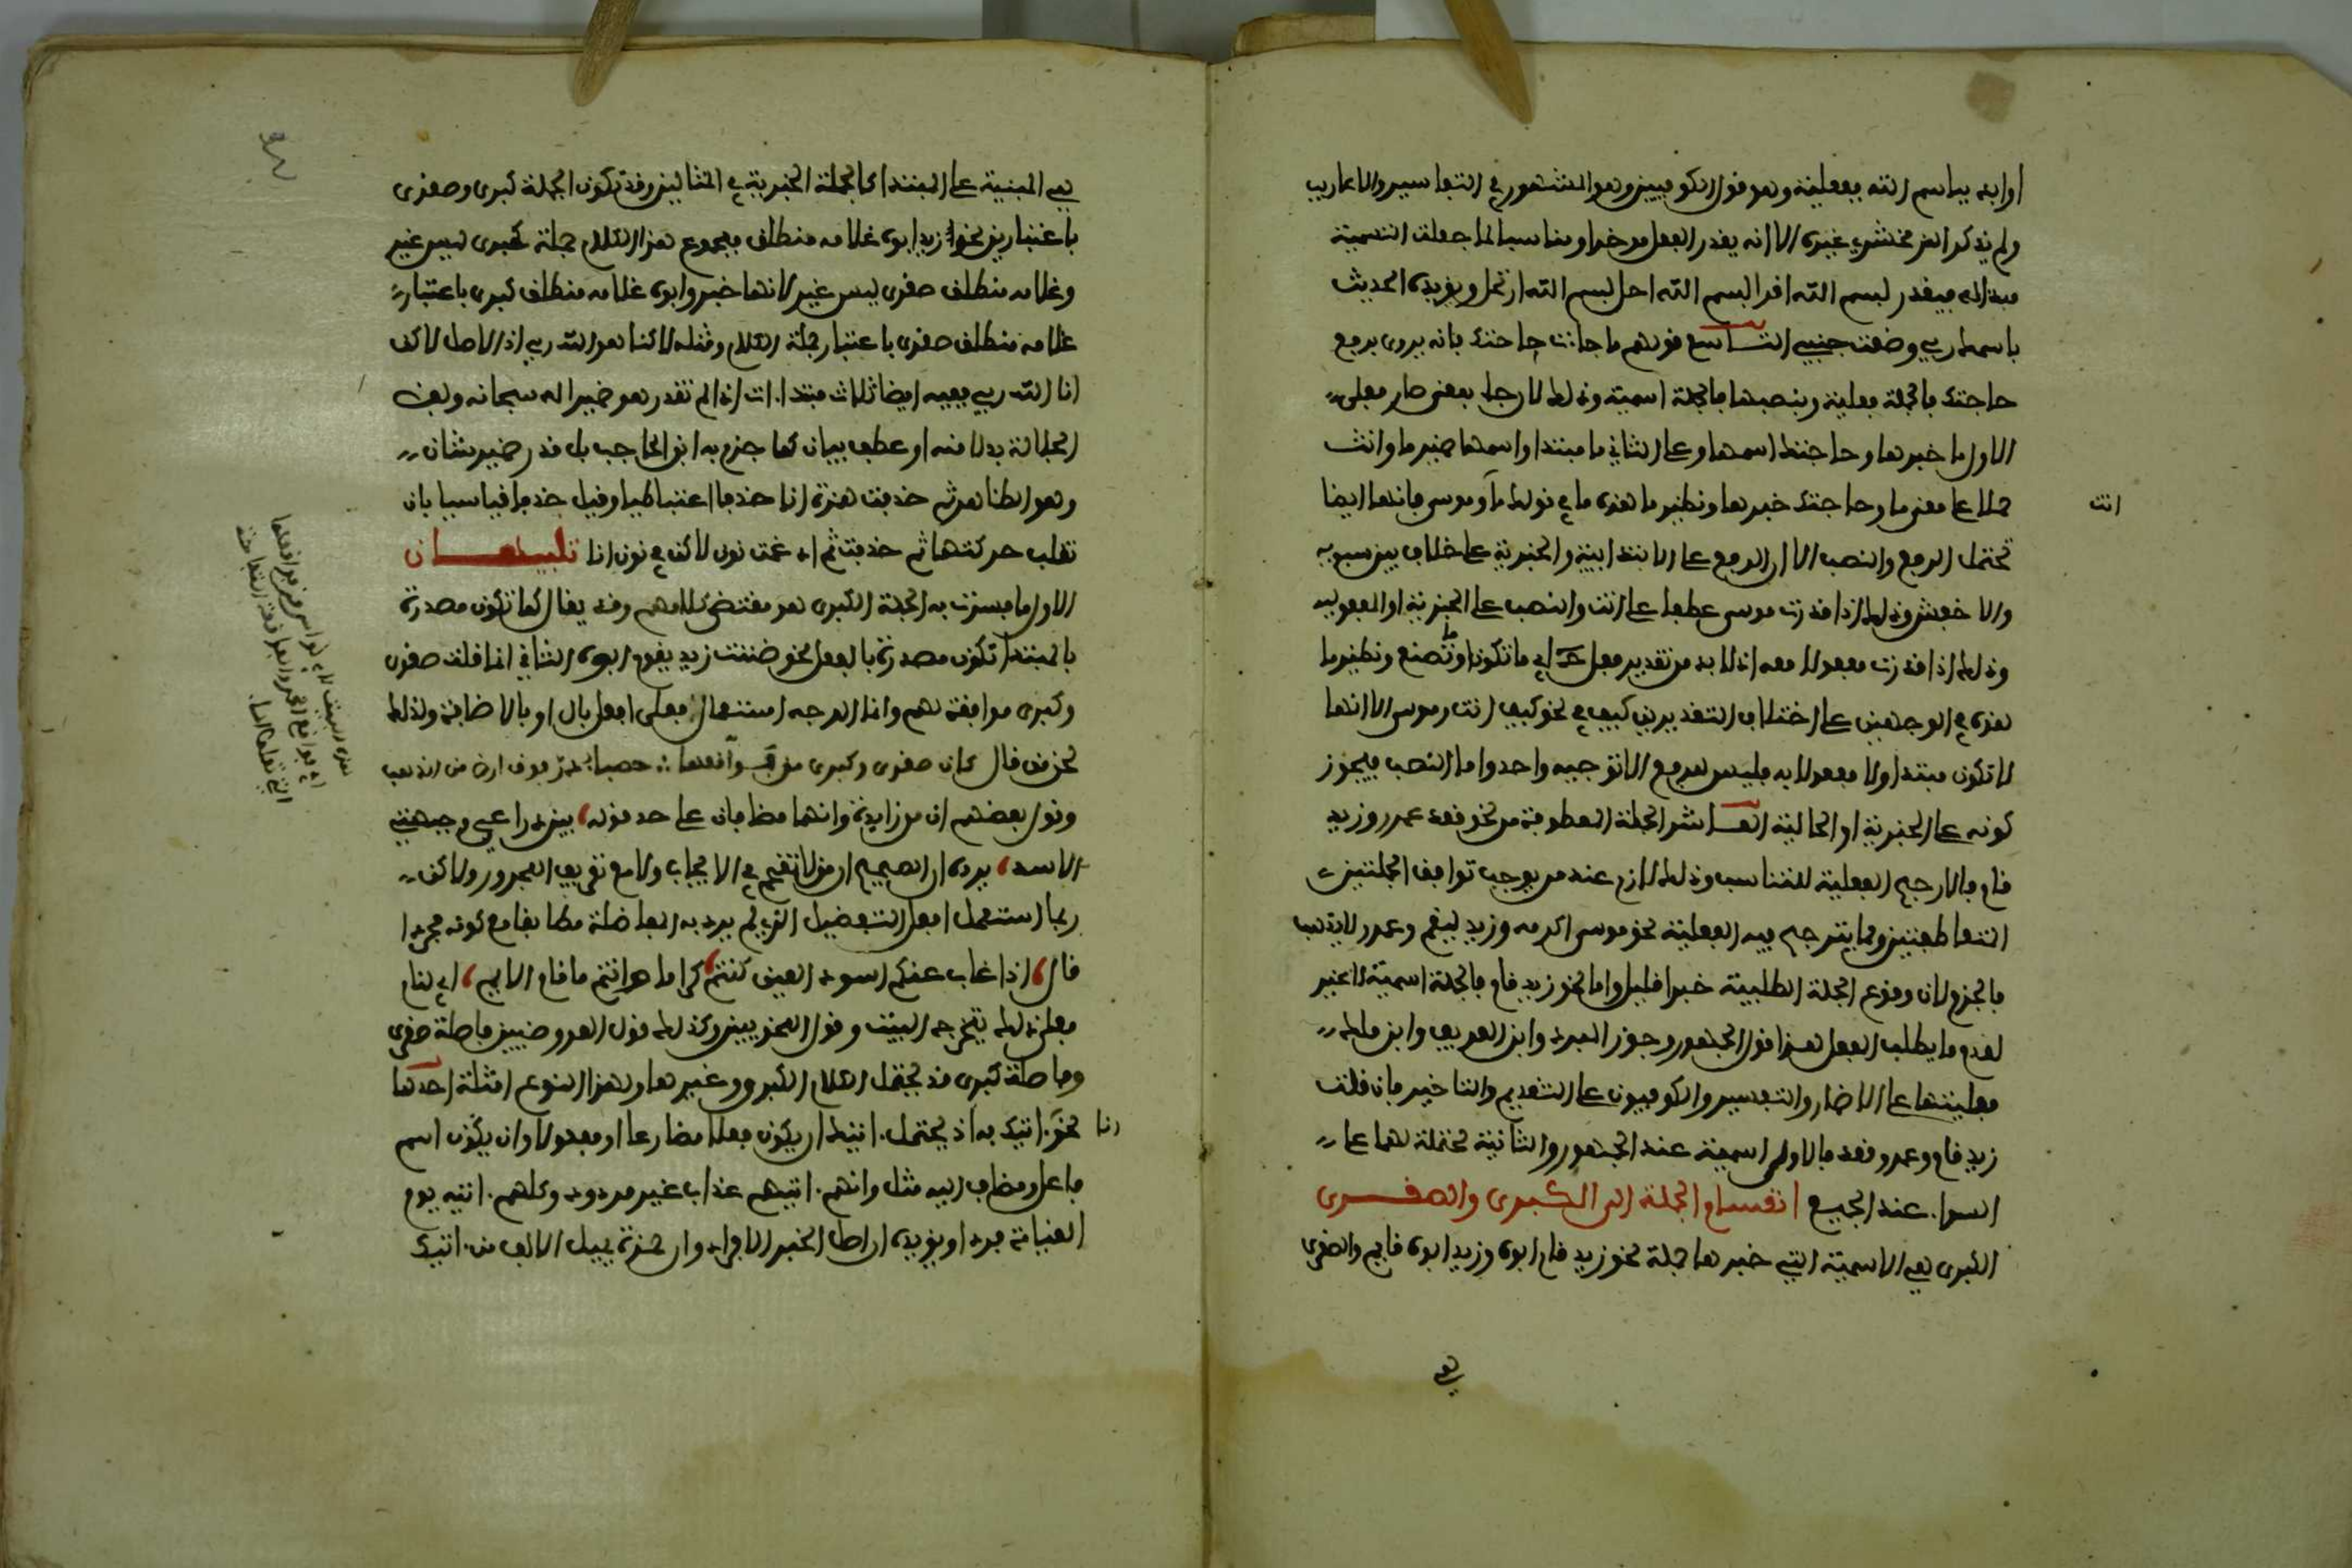 او ابدا باسم الله ففعلية وهو قول الكوفيين وهو المشهور في التفاسير والاعاريب
ولم يذكر الزمخشري غيره الا انه يقدر الفعل موخرا ومناسبا لما جعلت التسمية
مبدا له فيقدر بسم الله اقرا بسم الله احل بسم الله ارتحل ويؤيده الحديث
باسمك ربي وضعت جنبي التاسع قولهم ما جاءت حاجتك فانه يروى برفع
حاجتك فالجملة فعلية وبنصبها فالجملة اسمية وذلك لان جاء بمعنى صار فعلى
الاول ما خبرها وحاجتك اسمها وعلى الثاني ما مبتدا واسمها ضمير ما وانث
حملا على معنى ما وحاجتك خبرها ونظير ما هذه ما في قولك ما انت وموسى فانها ايضا
تحتمل الرفع والنصب الا ان الرفع على الابتدائية والخبرية على خلاف بين سيبويه
والاخفش وذلك اذا قدرت موسى عطفا على انت والنصب على الخبرية او المفعولية
وذلك اذا قدرت مفعولا معه اذ لا بد من تقدير فعل ح اي ما تكون او ما تصنع ونظير ما
هذه في الوجهين على اختلاف التقديرين كيف في نحو كيف انت وموسى الا انها
لا تكون مبتدا ولا مفعولا به فليس للرفع الا توجيه واحد واما النصب فيجوز
كونه على الخبرية او الحالية العاشر الجملة المعطوفة من نحو قعد عمرو وزيد
قام فالارجح الفعلية للتناسب وذلك لازم عند من يوجب توافق الجملتين
المتعاطفتين ومما يترجح فيه الفعلية نحو موسى اكرمه وزيد ليقم وعمرو لا يذهب
بالجزم لان وقوع الجملة الطلبية خبرا قليل واما نحو زيد قام فالجملة اسمية لا غير
لعدم ما يطلب الفعل هذا قول الجمهور وجوز المبرد وابن العريف وابن مالك
فعليتها على الاضمار والتفسير والكوفيون على التقديم والتاخير فان قلت
زيد قام وعمرو قعد فالاولى اسمية عند الجمهور والثانية محتملة لهما على
السواء عند الجميع انقسام الجملة الى الكبرى والصغرى
الكبرى هي الاسمية التي خبرها جملة نحو زيد قام ابوه وزيد ابوه قايم والصغرى
انت
هي
هي المبنية على المبتدا كالجملة الخبرية في المثالين وقد تكون الجملة كبرى وصغرى
باعتبارين نحو زيد ابوه غلامه منطلق فمجموع هذا الكلام جملة كبرى ليس غير
وغلامه منطلق صغرى ليس غير لانها خبر وابوه غلامه منطلق كبرى باعتبار
غلامه منطلق صغرى باعتبار جملة الكلام ومثله لاكنا هو الله ربي اذ الاصل لاكن
انا الله ربي ففيه ايضا ثلاث مبتدات اذا لم تقدر هو ضميرا له سبحانه ولفظ
الجلالة بدلا منه او عطف بيان كما جزم به ابن الحاجب بل قدر ضمير شان
وهو الظاهر ثم حذفت همزة انا حذفا اعتباطيا وقيل حذفا قياسيا بان
نقلت حركتها ثم حذفت ثم ادغمت نون لاكن في نون انا تنبيهان
الاول ما فسرت به الجملة الكبرى هو مقتضى كلامهم وقد يقال كما تكون مصدرة
بالمبتدا تكون مصدرة بالفعل نحو ظننت زيد يقوم ابوه الثاني انما قلت صغرى
وكبرى موافقة لهم وانما الوجه استعمال فعلى افعل بال او بالاضافة ولذلك
لحن من قال كان صغرى وكبرى من فواقعها حصباء در فوق ارض من الذهب
وقول بعضهم ان من زايدة وانهما مضافان على حد قوله بين ذراعي وجبهة
الاسد يرده ان الصحيح ان من لا تقحم في الايجاب ولا مع تعريف المجرور ولاكن
ربما استعمل افعل التفضيل الذي لم يرد به المفاضلة مطابقا مع كونه مجردا
قال اذا غاب عنكم اسود العين كنتم كراما وانتم ما قام الايم اي ليام
فعلى ذلك يتخرج البيت وقول النحويين وكذلك قول العروضيين فاصلة صغرى
وفاصلة كبرى قد يحتمل الكلام الكبرى وغيرها ولهذا النوع امثلة احدها
نحو انا اتيك به اذ يحتمل اتيك ان يكون فعلا مضارعا ومفعولا وان يكون اسم
فاعل ومضاف اليه مثل وانهم اتيهم عذاب غير مردود وكلهم اتيه يوم
القيامة فردا ويؤيده ان اصل الخبر الافراد وان حمزة يميل الالف من اتيك